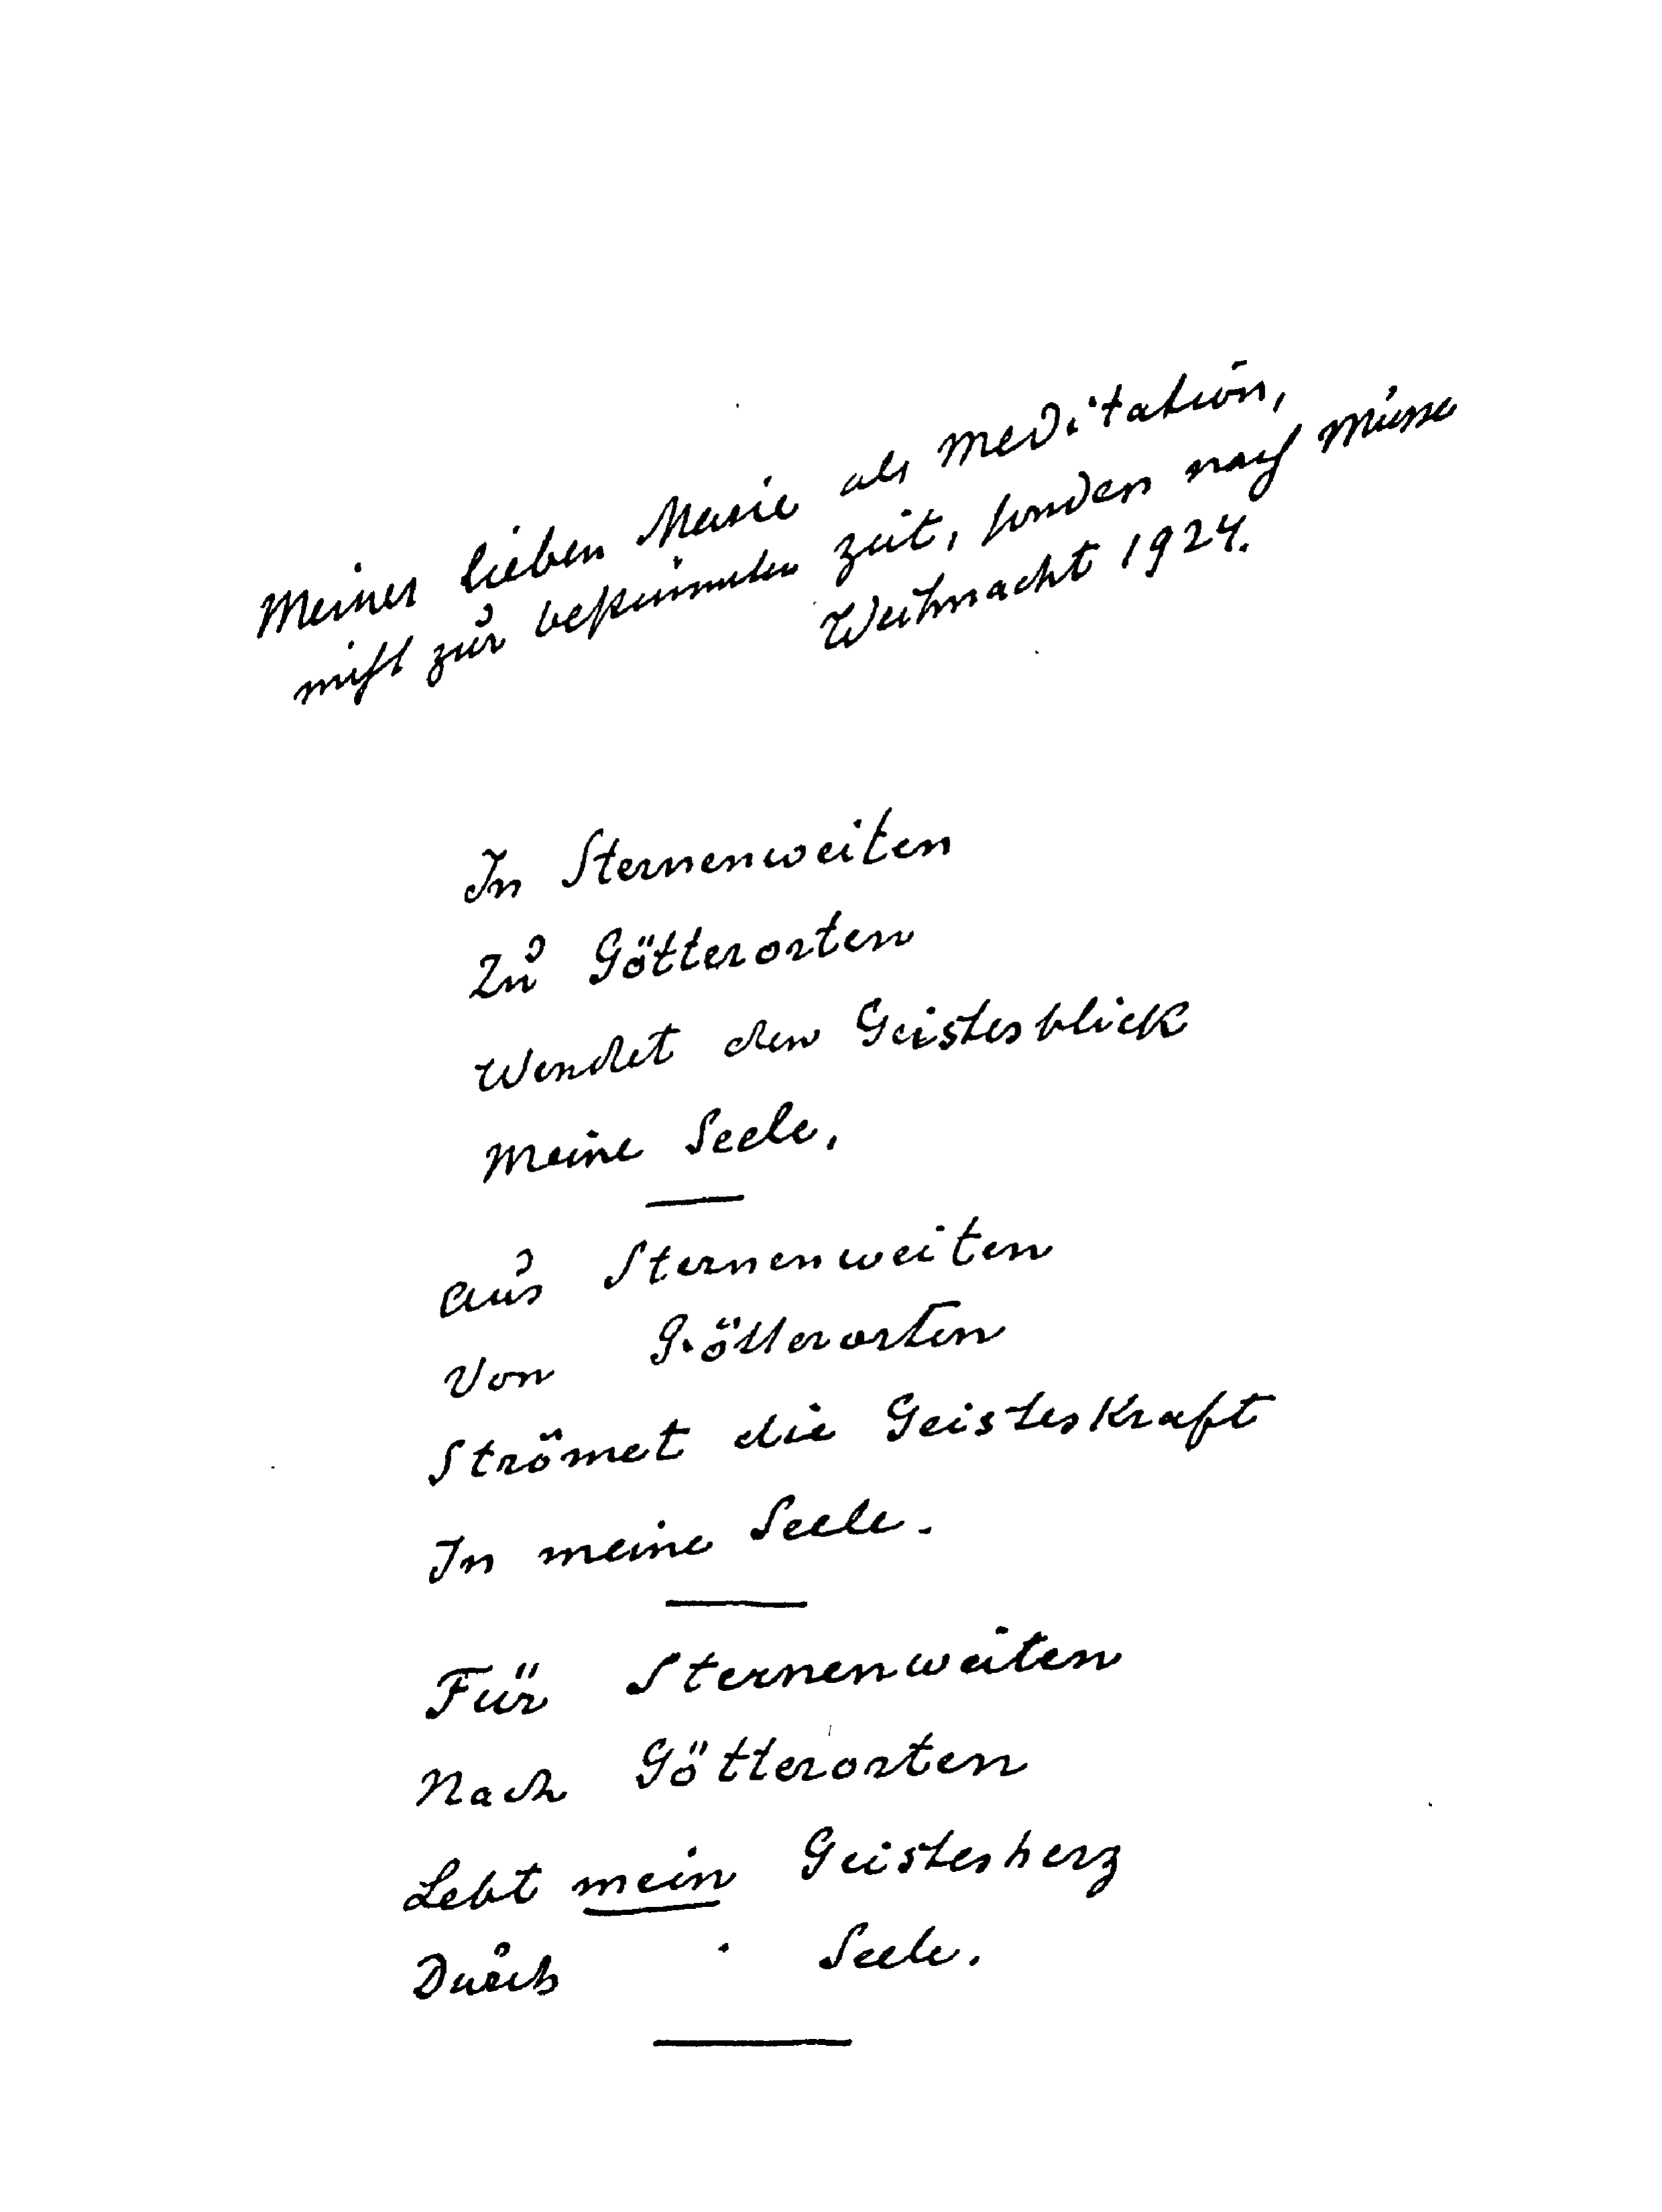 Meiner lieben Marie als Meditation,
nicht zur bestimmten Zeit, sondern nach Musse
Weihnacht 1924.
In Sternenweiten
Zu Götterorten
Wendet den Geistesblick
Meine Seele.
Aus Sternenweiten
Von Götterorten
Strömet die Geisteskraft
In meine Seele.
Für Sternenweiten
Nach Götterorten
Lebt mein Geistesherz
Durch Seele.